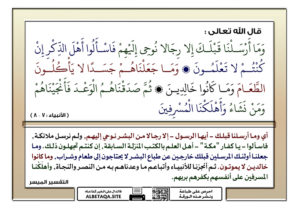 قال الله تعالى :
وَمَا أَرْسَلْنَا قَبْلَكَ إِلَّا رِجَالًا نُوحِي إِلَيْهِمْ فَاسْأَلُوا أَهْلَ الذِّكْرِ إِنْ
كُنْتُمْ لَا تَعْلَمُونَ ۞ وَمَا جَعَلْنَاهُمْ جَسَدًا لَا يَأْكُلُونَ
الطَّعَامَ وَمَا كَانُوا خَالِدِينَ ۞ ثُمَّ صَدَقْنَاهُمُ الْوَعْدَ فَأَنْجَيْنَاهُمْ
وَمَنْ نَشَاءُ وَأَهْلَكْنَا الْمُسْرِفِينَ
(الأنبياء : ٧ - ٨)
أي وما أرسلنا قبلك - أيها الرسول - إلا رجالا من البشر نوحي إليهم، ولم نرسل ملائكة،
فاسألوا - يا كفار "مكة" - أهل العلم بالكتب المنزلة السابقة، إن كنتم تجهلون ذلك. وما
جعلنا أولئك المرسلين قبلك خارجين عن طباع البشر لا يحتاجون إلى طعام وشراب، وما كانوا
خالدين لا يموتون. ثم أنجزنا للأنبياء وأتباعهم ما وعدناهم به من النصر والنجاة، وأهلكنا
المسرفين على أنفسهم بكفرهم بربهم.
التفسير الميسر
ALBETAQA.SITE